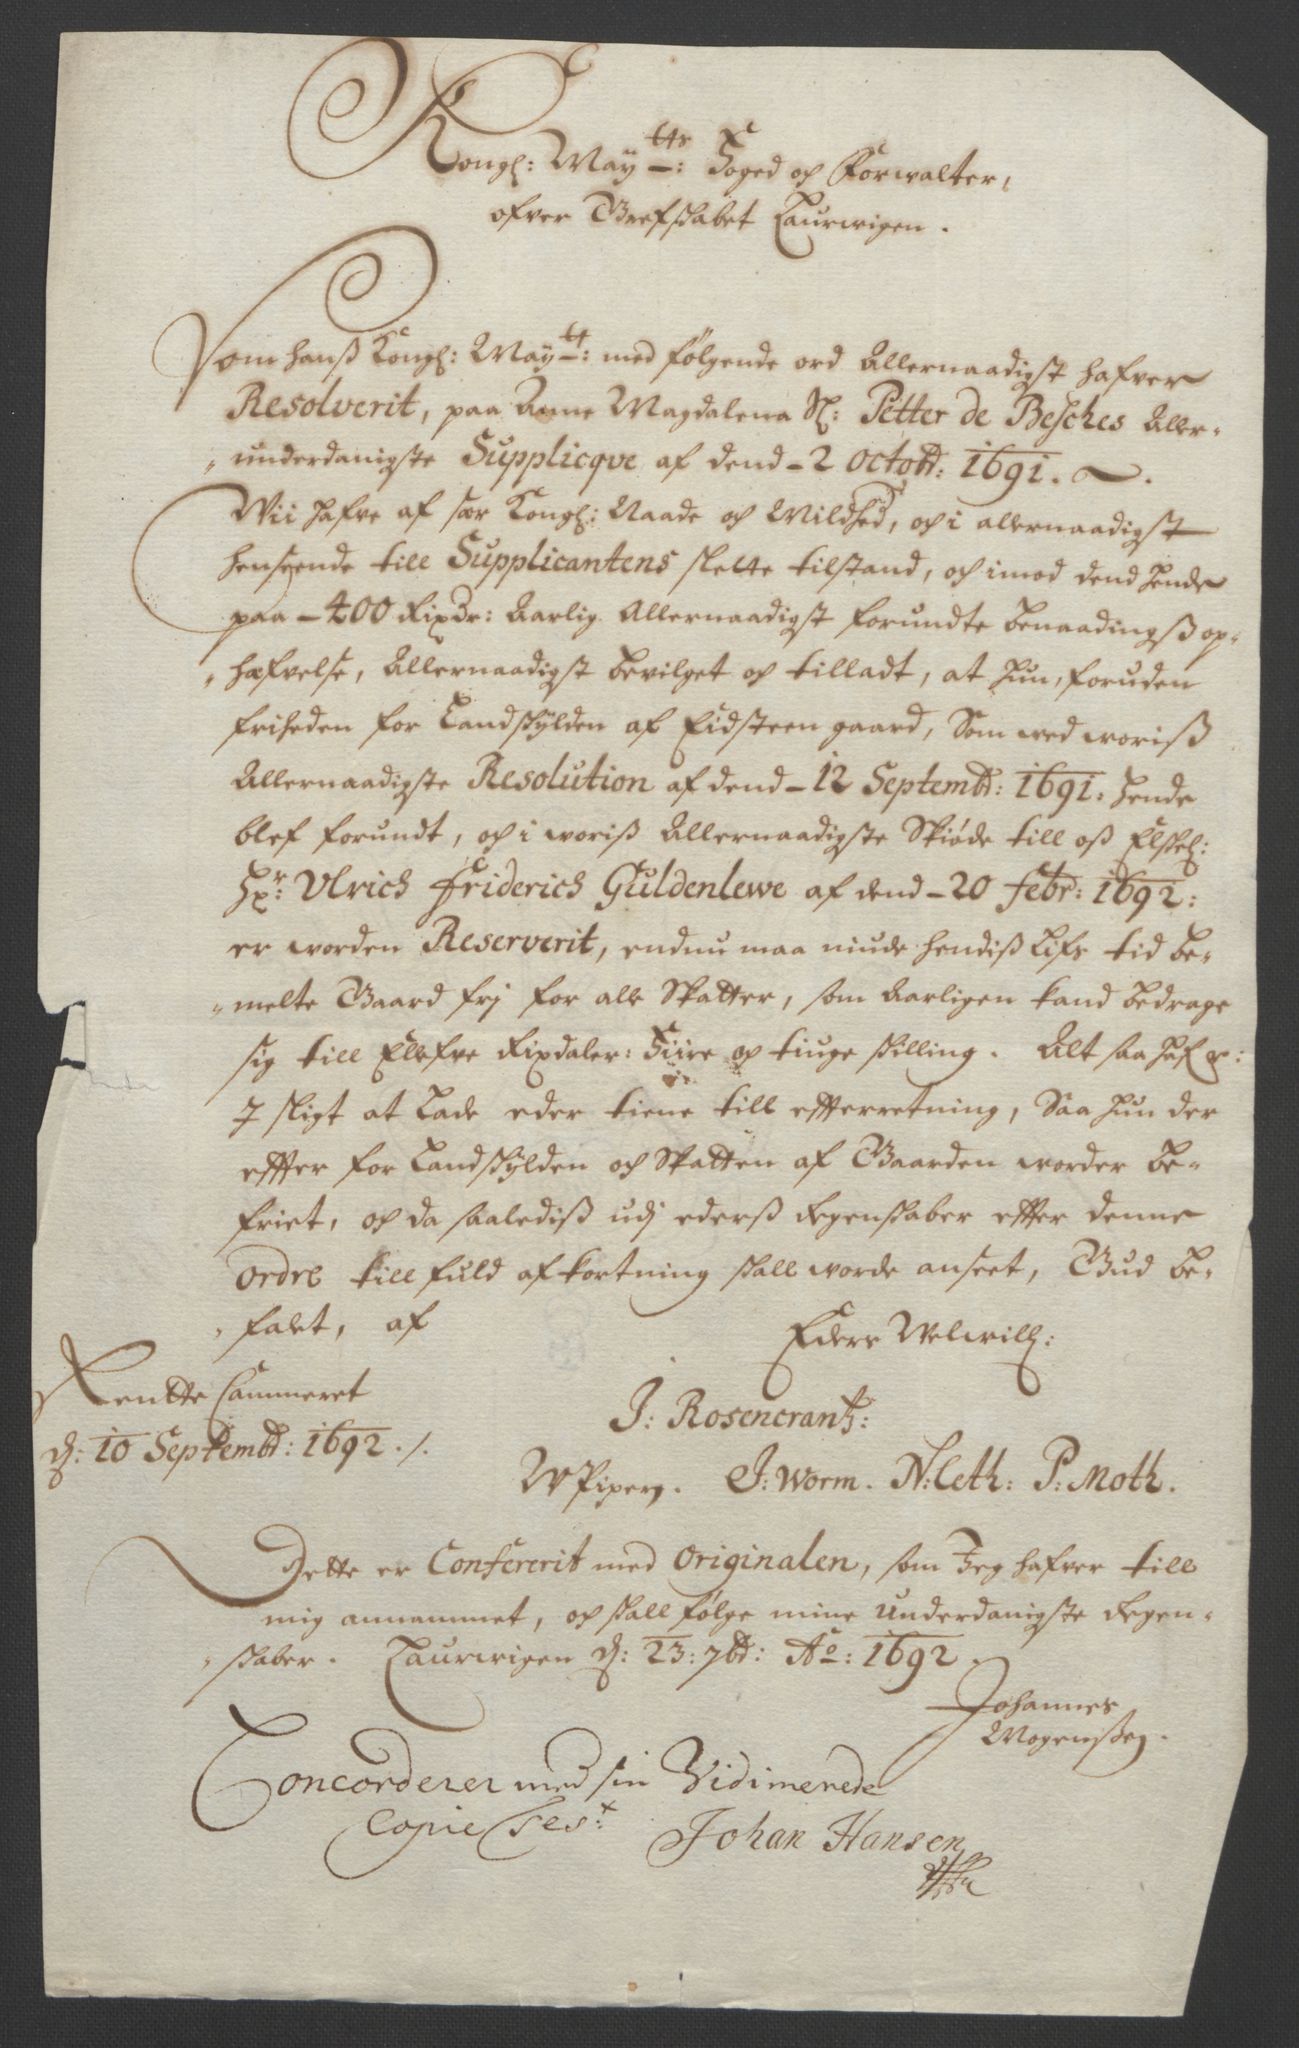 Kongl: May^tts: Foged och Forwalter,
ofver Grefskabet Laurwigen.
Som hanß Kongl: May^tt: med følgende ord Allernaadigst hafver
Resolverit, paa Anne Magdalena Sl: Petter de Besches Aller-
underdanigste Supplicqve af dend - 2 Octobr: 1691.
Wii hafve af sær Kongl: Naade och Mildhed, och i allernaadigst
henseende till Supplicantens slette tilstand, och imod dend hende
paa - 400 Rixdr: Aarlig Allernaadigst forundte benaadingß op-
hæfvelse, Allernaadigst bevilget och tilladt, at hun, foruden
friheden for Landskylden af Eidsteen gaard, Som wed woriß
Allernaadigste Resolution af dend - 12 Septembr: 1691: hende
blef forundt, och i woriß Allernaadigste Skiøde till oß Elskel:
Hr: Ulrich Friderich Guldenlewe af dend - 20 Febr: 1692:
er worden Reserverit, endnu maa niude hendiß Lifs tid be-
melte Gaard frj for alle Skatter, som Aarligen kand bedrage
sig till Ellefve Rixdaler: Fiire og tiuge skilling. Alt saa haf er:
I sligt at Lade eder tiene till efterretning, Saa hun der
effter for Landskylden och Skatten af Gaarden worder be-
friet, og da saalediß udj ederß Regenskaber effter denne
Ordre till fuld afkortning skall worde anseet, Gud be-
falet, af
Eders Welwill:
Rentte Cammeret
d: 10 Septembr: 1692 ./.
J: Rosencrantz:
W Piper. J: Worm. N: Leth: P: Moth.
Dette er Confererit med Originalen, som Jeg hafver till
mig annammet, og skall følge mine Underdanigste Regen-
skaber. Laurwigen d: 23: 7br: Ao: 1692.
Johannes
Mogenßen.
Concorderer med sin Vidimerede
Copie Test:
Johan Hansen